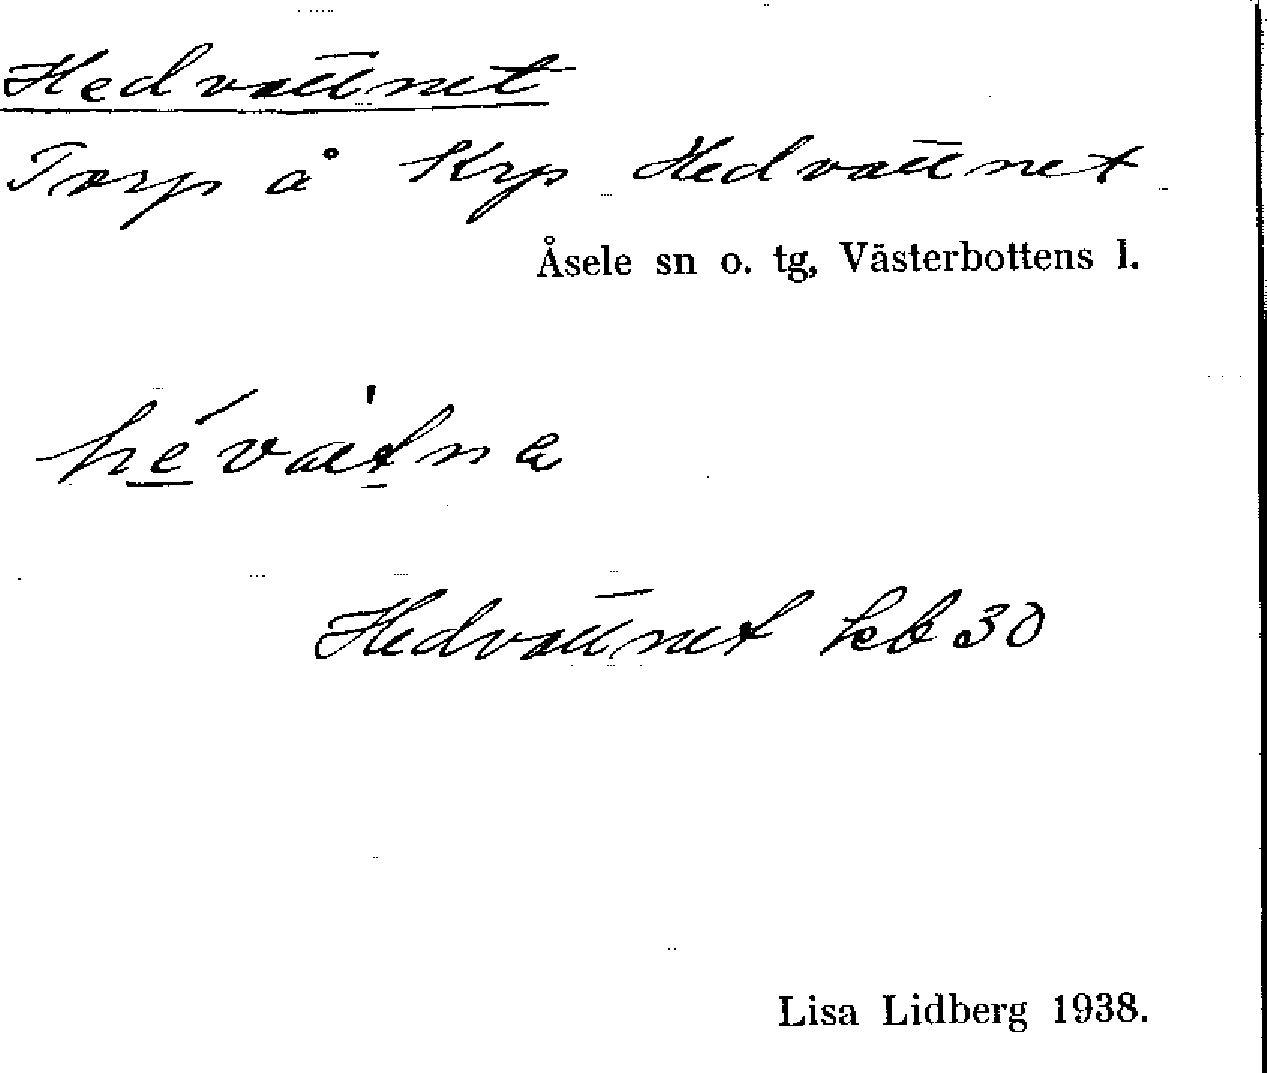 Hedvattnet
Torp å Krp Hedvattnet
Åsele sn o. tg, Västerbottens l.
hévatna
Hedvattnet kb 30
Lisa Lidberg 1938.